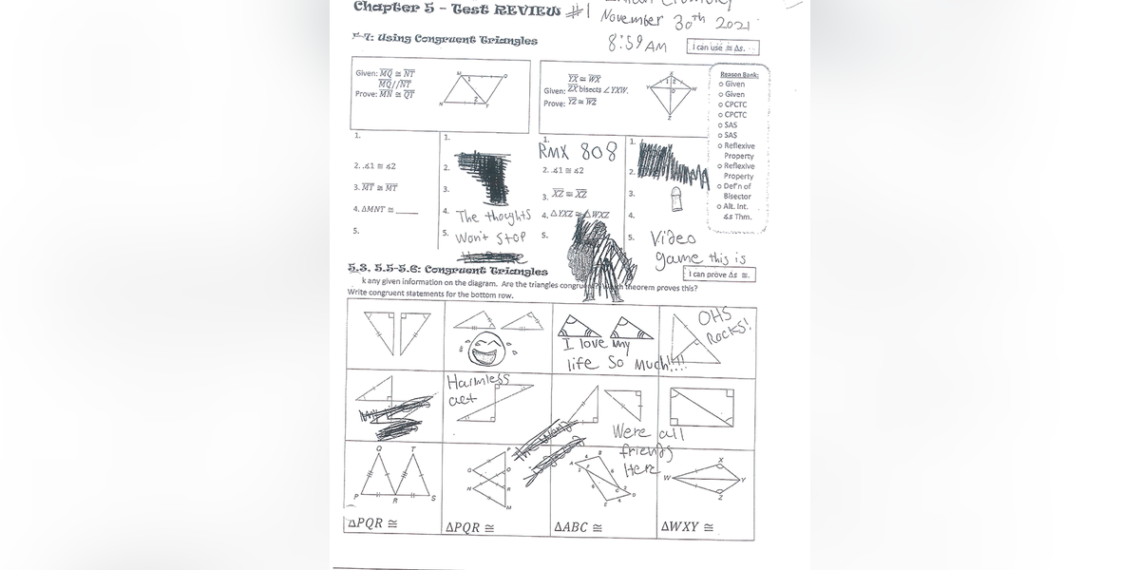 Chapter 5 – Test REVIEW #1
November 30th 2021
8:59 AM
Using Congruent Triangles
I can use ≅ Δs.
Given: MQ ≅ NT
MQ//NT
Prove: MN ≅ QT
YX ≅ WX
Given: ZX bisects ∠YXW.
Prove: YZ ≅ WZ
Reason Bank:
o Given
o Given
o CPCTC
o CPCTC
o SAS
o SAS
o Reflexive
Property
o Reflexive
Property
o Def'n of
Bisector
o Alt. Int.
∡s Thm.
1.
2. ∡1 ≅ ∡2
3. MT ≅ MT
4. ΔMNT ≅ ____
5.
1.
2.
3.
4. The thoughts
5. Won't Stop
1.
RMX 808
2. ∡1 ≅ ∡2
3. XZ ≅ XZ
4. ΔYXZ ≅ ΔWXZ
5.
1.
2.
3.
4.
5. Video
game this is
5.3, 5.5-5.6: Congruent Triangles
I can prove Δs ≅.
k any given information on the diagram. Are the triangles congruent? Which theorem proves this?
Write congruent statements for the bottom row.
I love my
life So Much!!!!
OHS
Rocks!
Harmless
act
Were all
friends
Here
Q T
P R S
ΔPQR ≅
ΔPQR ≅
ΔABC ≅
X
W Y
Z
ΔWXY ≅